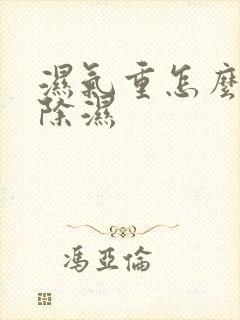 濕氣重怎麼
除濕
馮亞倫